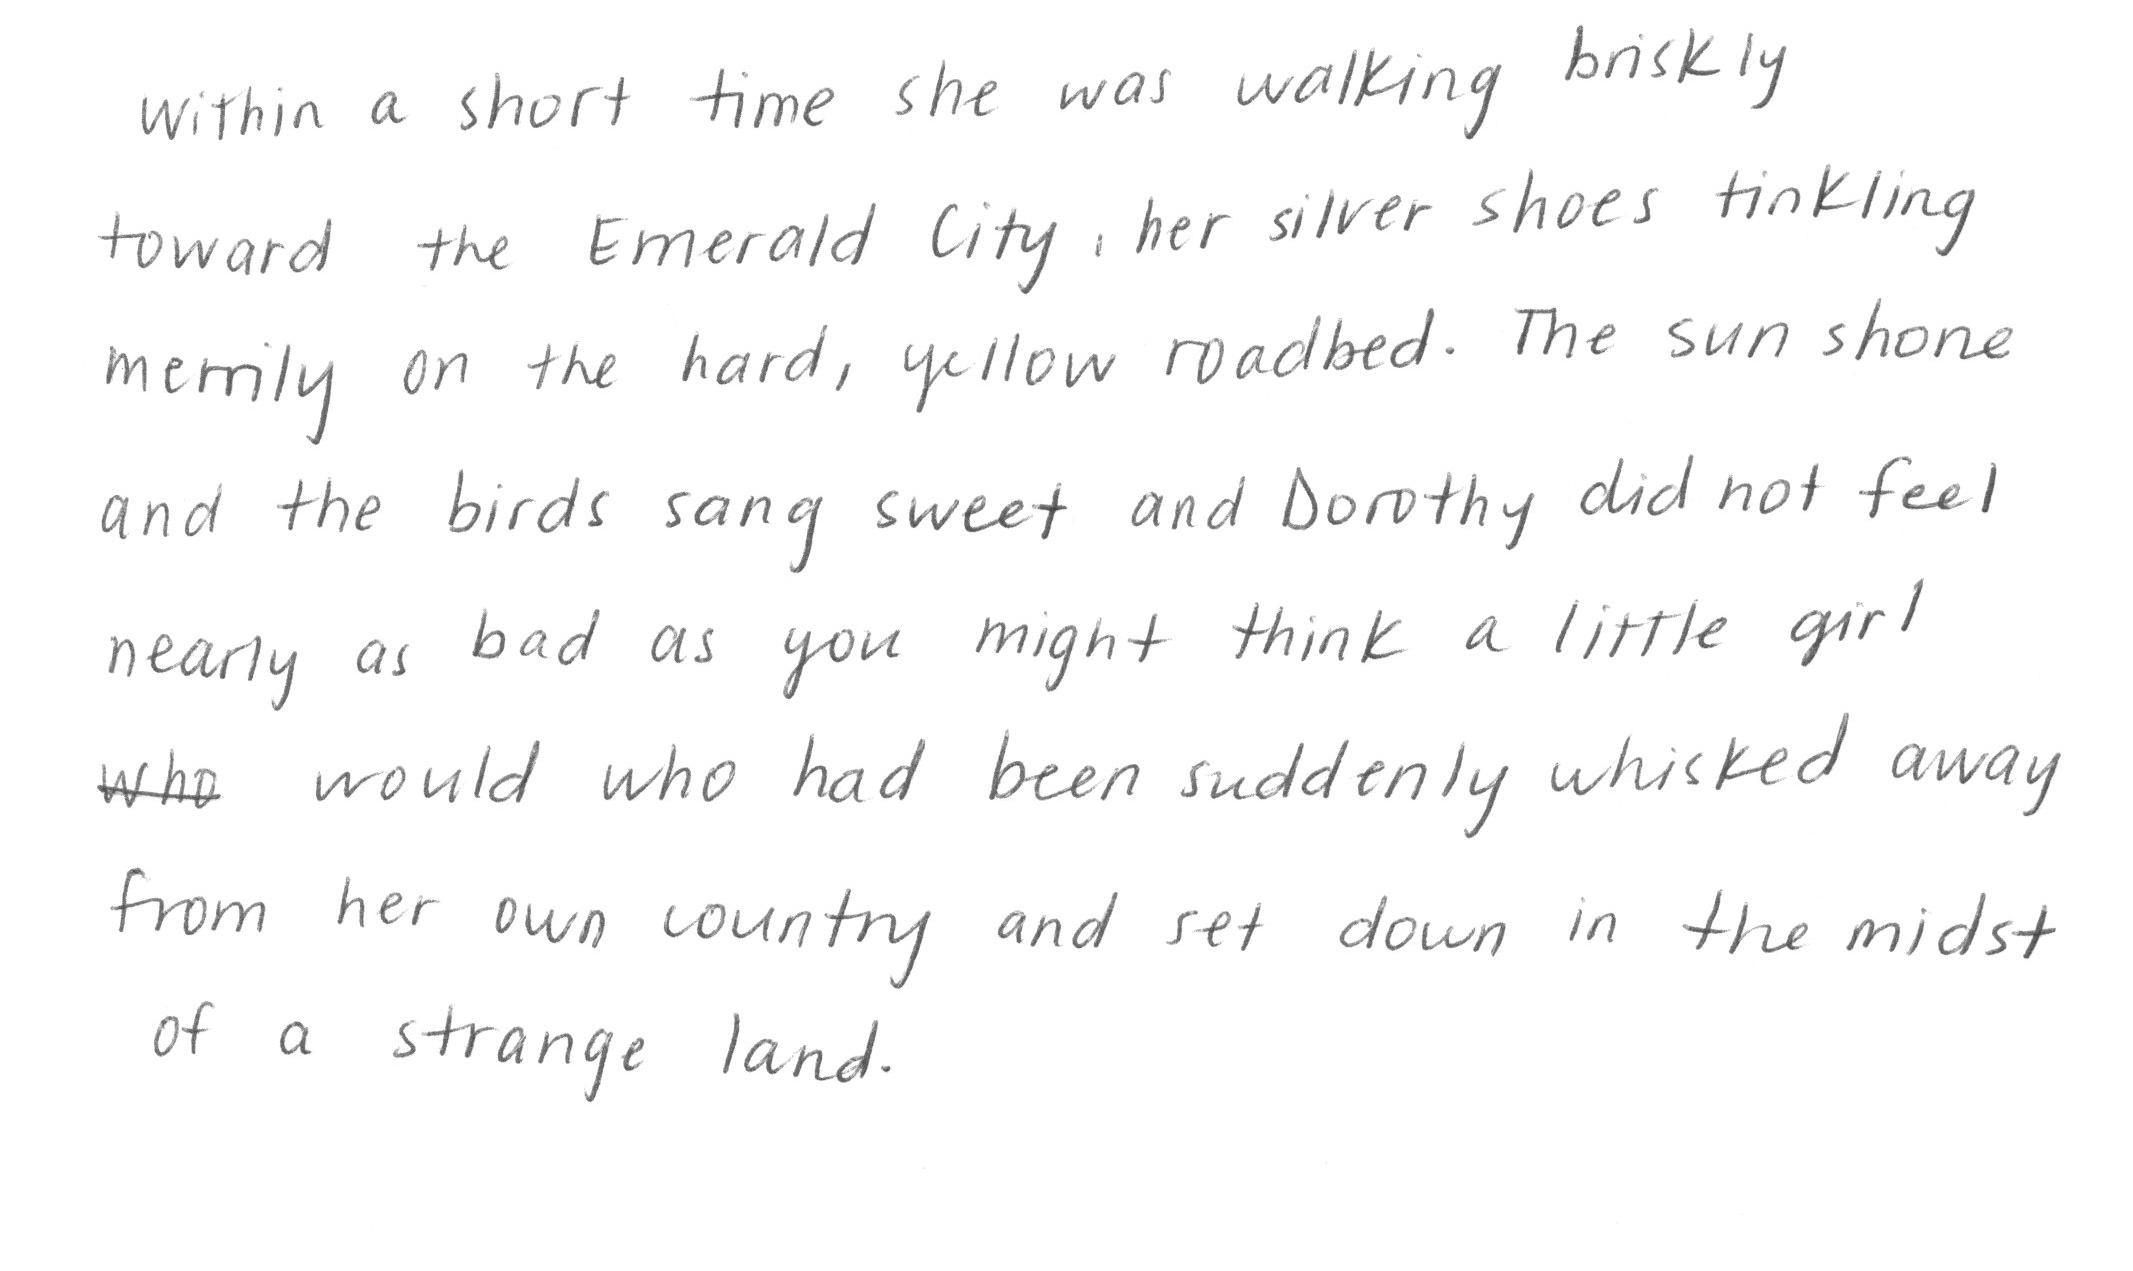 Within a short time she was walking briskly
toward the Emerald City, her silver shoes tinkling
merrily on the hard, yellow roadbed. The sun shone
and the birds sang sweet and Dorothy did not feel
nearly as bad as you might think a little girl
who would who had been suddenly whisked away
from her own country and set down in the midst
of a strange land.